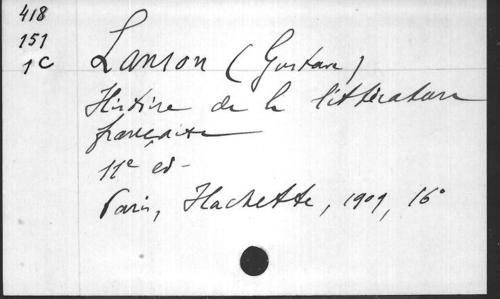 418
151
1C
Lanson (Gustave)
Histoire de la littérature
française
11e éd-
Paris, Hachette, 1909, 16°